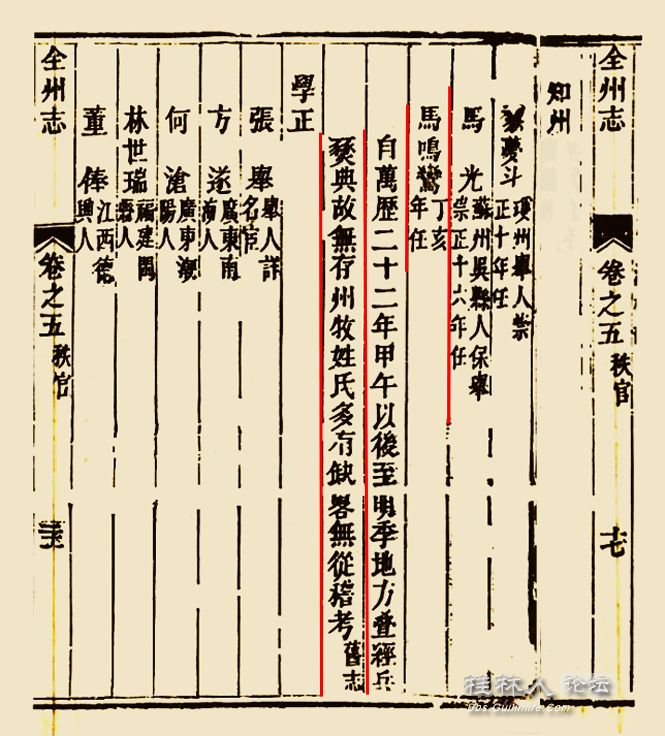 全州志 卷之五 秩官
知州
夢斗 瓊州舉人崇正十年任
馬光 蘇州吳縣人保舉崇正十六年任
馬鳴鸞 丁亥年任
自萬歷二十二年甲午以後至明季地方疊經兵
燹典故無存州牧姓氏多有缺畧無從稽考 舊志
學正
張舉 舉人詳名宦
方遂 廣東南海人
何滄 廣東潮陽人
林世瑞 福建閩縣人
董俸 江西德興人
全州志 卷之五 秩官
桂林人 论坛
Bbs.Guilinlife.Com